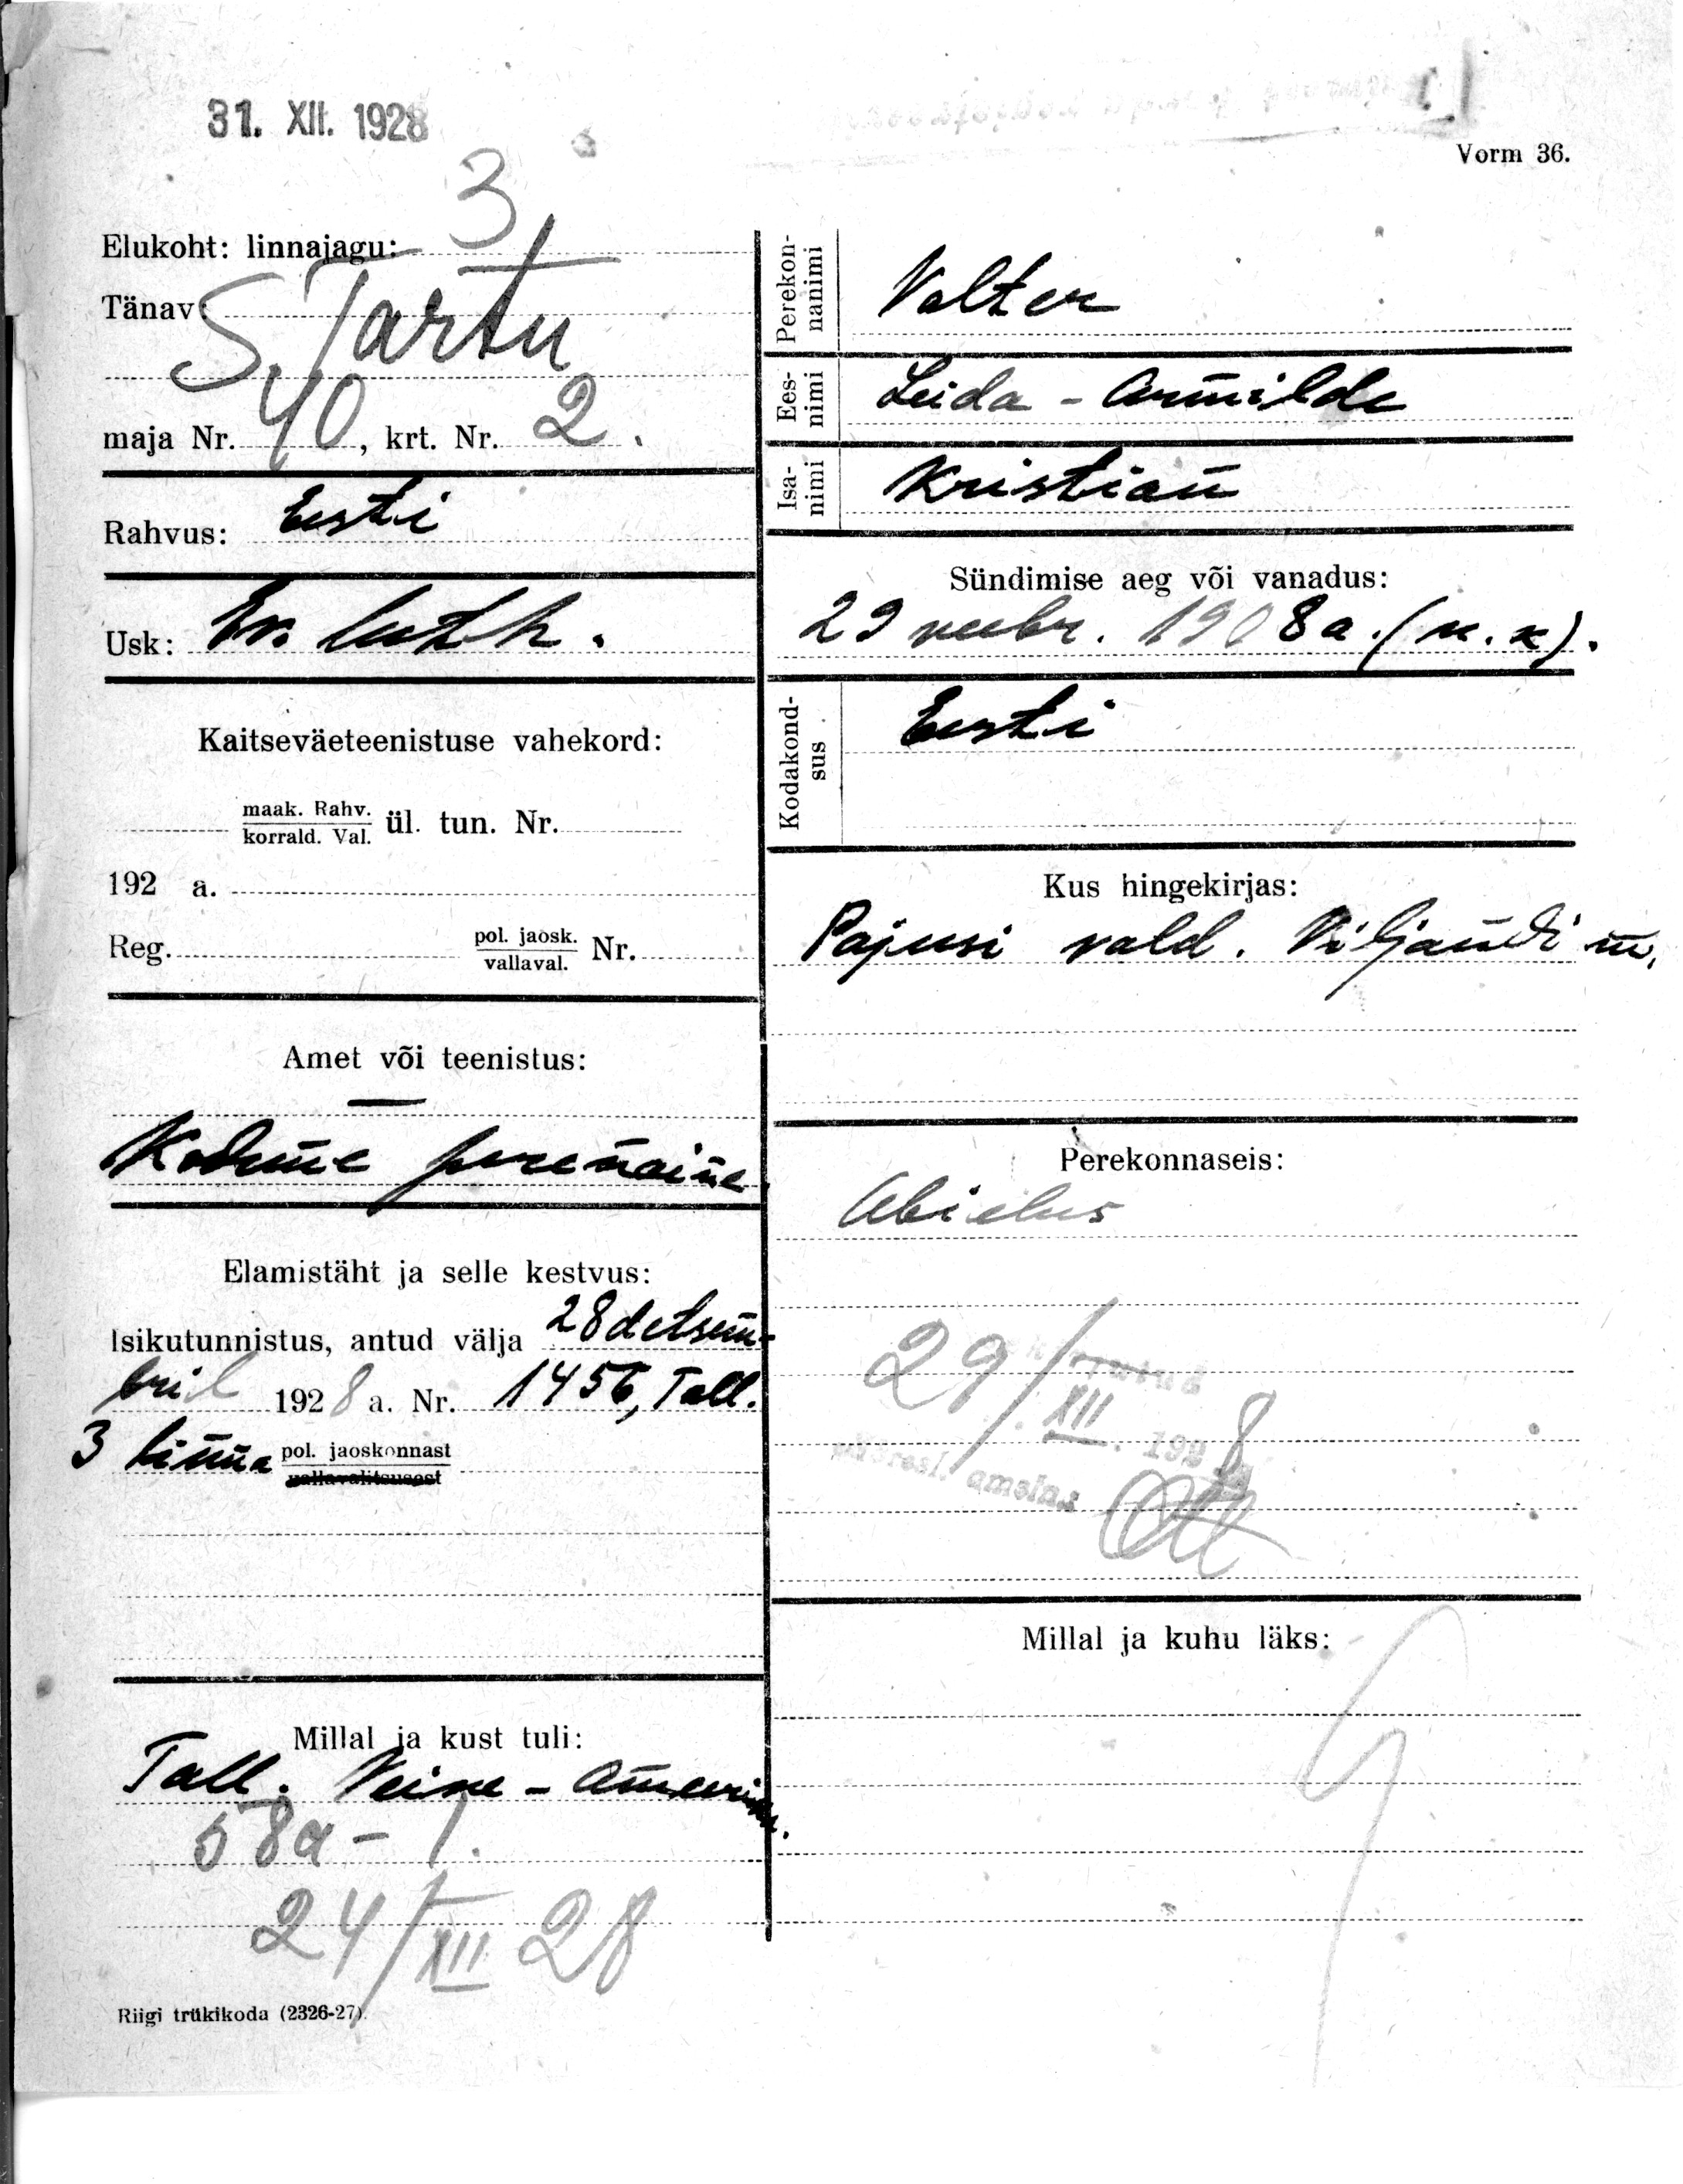 31. XII. 1928
Vorm 36.
Elukoht: linnajagu: 3
Tänav: S. Tartu
maja Nr. 40, krt. Nr. 2.
Rahvus: Eesti
Usk: Ev. luth.
Kaitseväeteenistuse vahekord:
maak. Rahv.
korrald. Val. ül. tun. Nr.
192 a.
Reg. pol. jaosk.
vallaval. Nr.
Amet või teenistus:
—
Kodune perenaine
Elamistäht ja selle kestvus:
Isikutunnistus, antud välja 28 detsem-
bril 1928 a. Nr. 1456, Tall.
3 linna pol. jaoskonnast
vallavalitsusest
Millal ja kust tuli:
Tall. Veike-Ameerika.
58a-1.
24/XII 28
Riigi trükikoda (2326-27).
Perekon-
nanimi
Valter
Ees-
nimi
Leida-Armilde
Isa-
nimi
Kristian
Sündimise aeg või vanadus:
29 veebr. 1908 a. (u. k).
Kodakond-
sus
Eesti
Kus hingekirjas:
Pajusi vald. Viljandi m.
Perekonnaseis:
Abielus
29/XII. 1928
Millal ja kuhu läks: